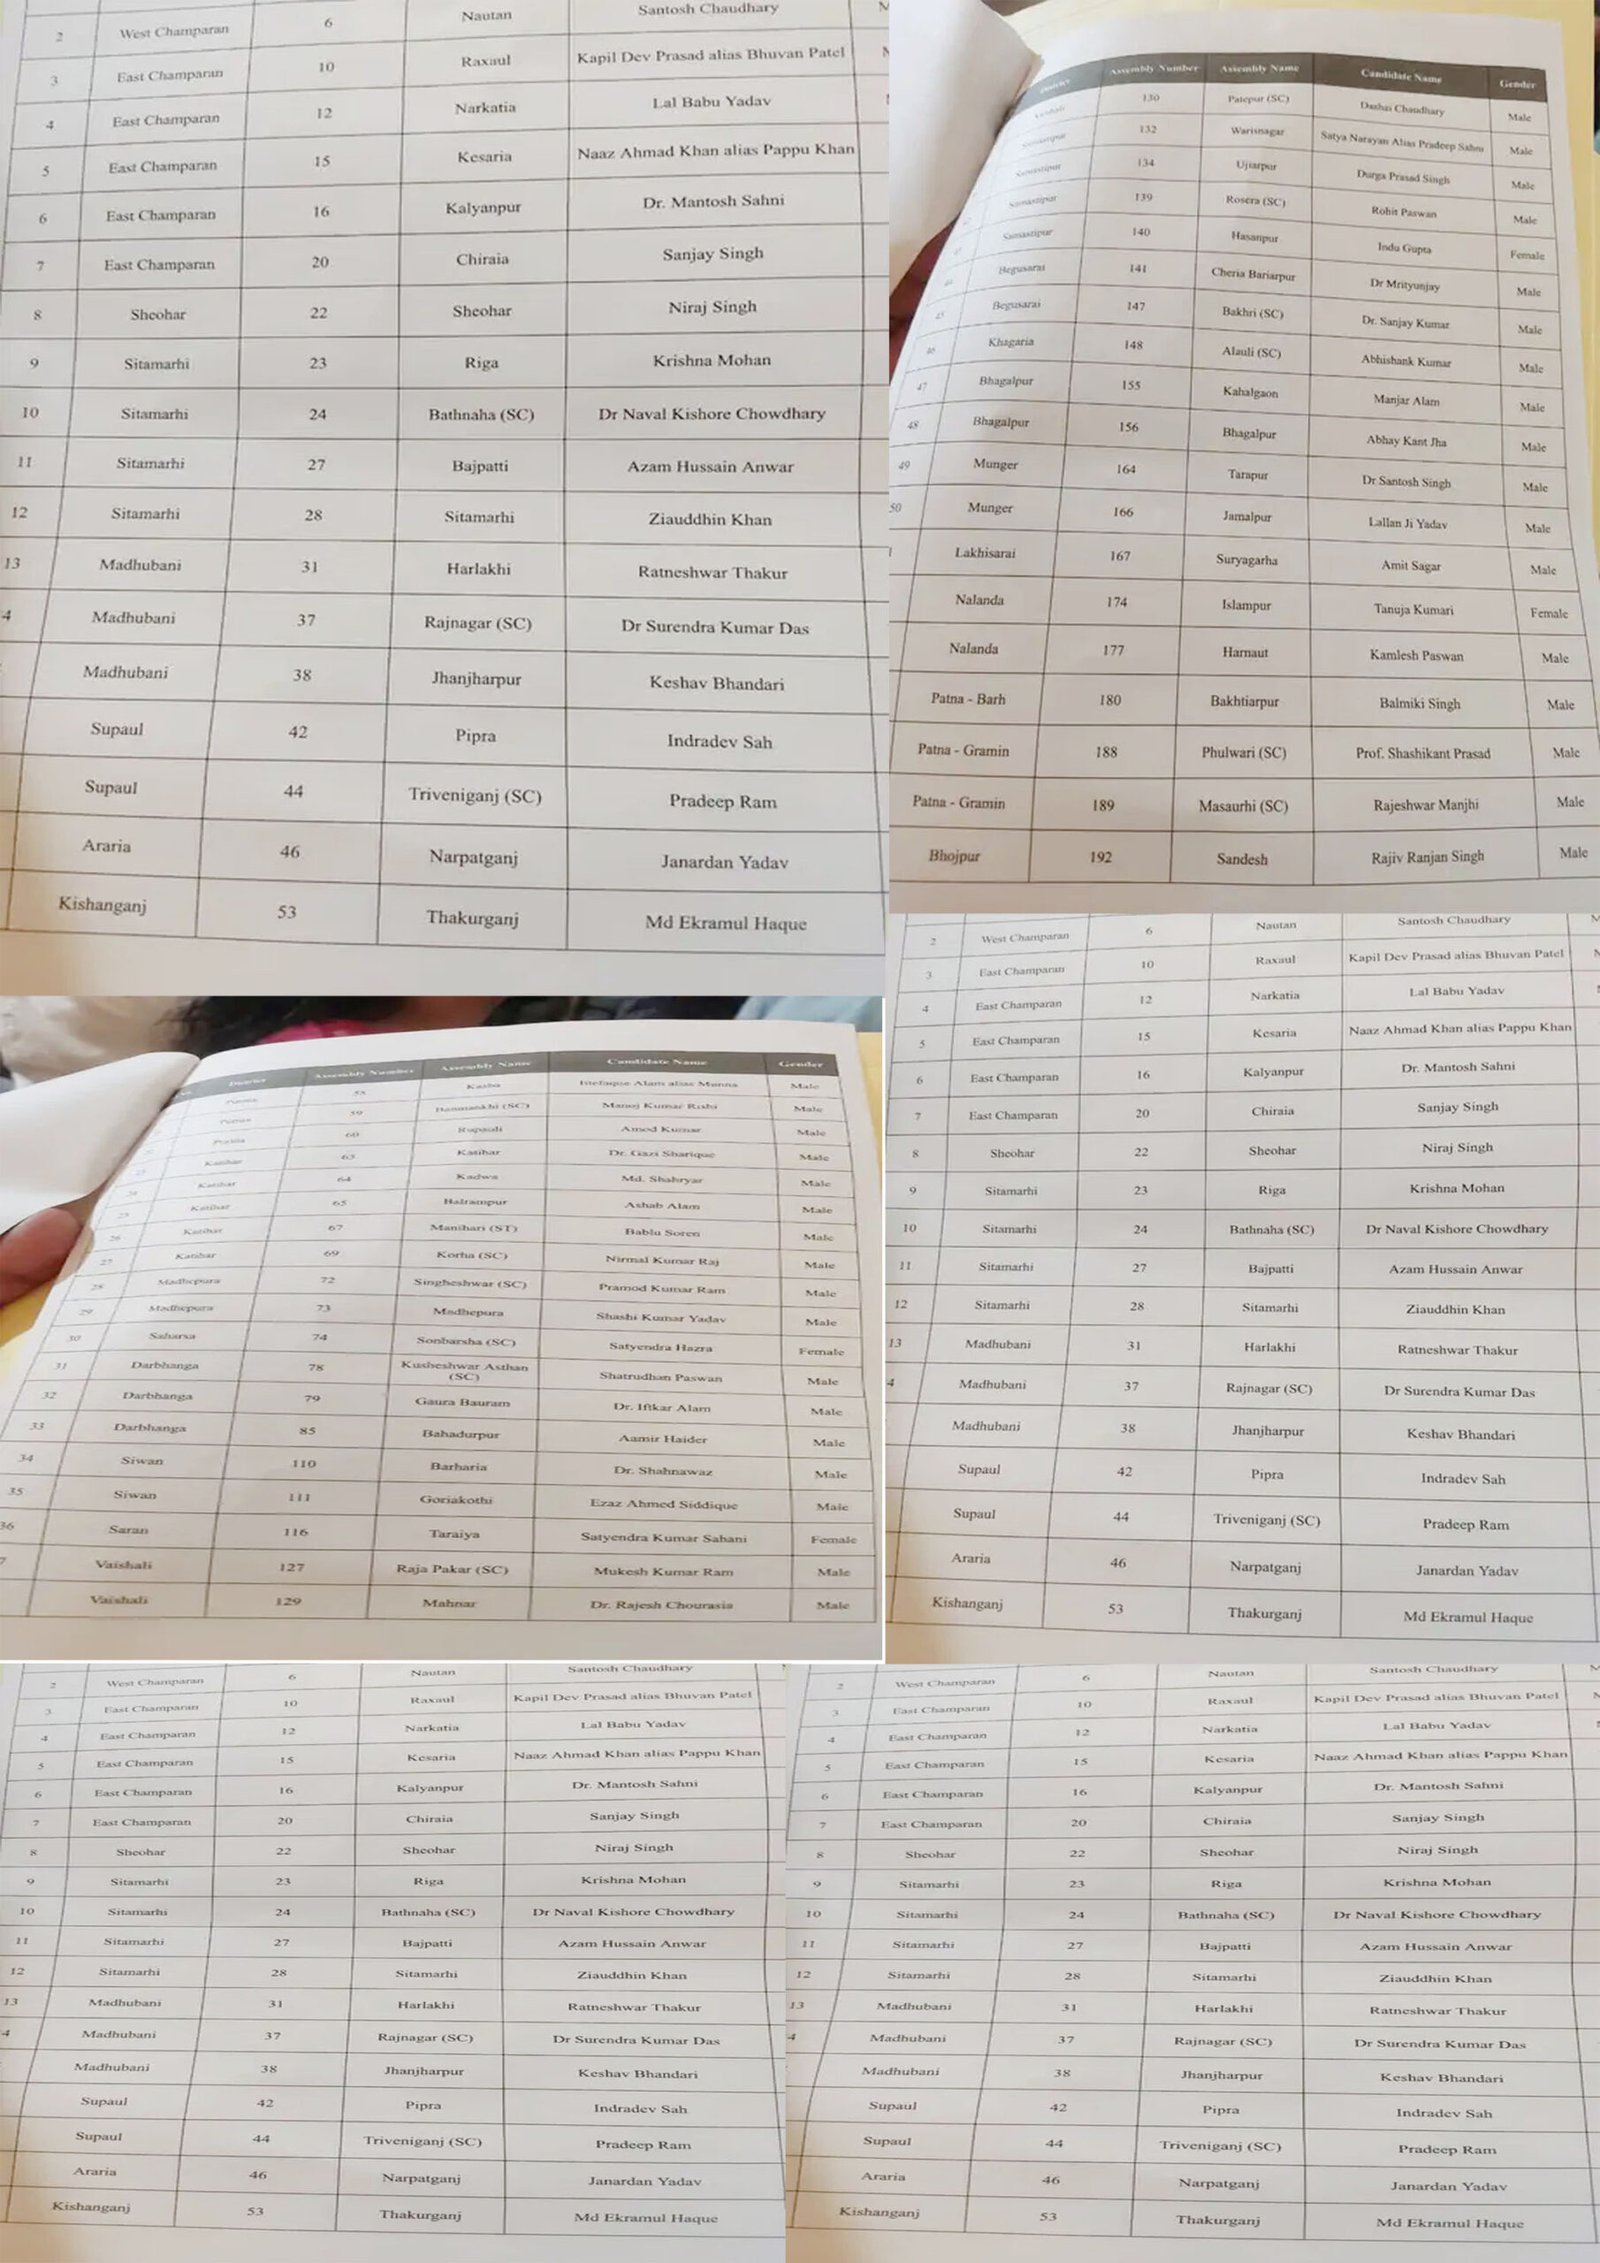 2 West Champaran 6 Nautan Santosh Chaudhary
3 East Champaran 10 Raxaul Kapil Dev Prasad alias Bhuvan Patel
4 East Champaran 12 Narkatia Lal Babu Yadav
5 East Champaran 15 Kesaria Naaz Ahmad Khan alias Pappu Khan
6 East Champaran 16 Kalyanpur Dr. Mantosh Sahni
7 East Champaran 20 Chiraia Sanjay Singh
8 Sheohar 22 Sheohar Niraj Singh
9 Sitamarhi 23 Riga Krishna Mohan
10 Sitamarhi 24 Bathnaha (SC) Dr Naval Kishore Chowdhary
11 Sitamarhi 27 Bajpatti Azam Hussain Anwar
12 Sitamarhi 28 Sitamarhi Ziauddhin Khan
13 Madhubani 31 Harlakhi Ratneshwar Thakur
4 Madhubani 37 Rajnagar (SC) Dr Surendra Kumar Das
Madhubani 38 Jhanjharpur Keshav Bhandari
Supaul 42 Pipra Indradev Sah
Supaul 44 Triveniganj (SC) Pradeep Ram
Araria 46 Narpatganj Janardan Yadav
Kishanganj 53 Thakurganj Md Ekramul Haque
District Assembly Number Assembly Name Candidate Name Gender
130 Patepur (SC) Chaudhary Male
Samastipur 132 Warisnagar Satya Narayan Alias Pradeep Sahni Male
Samastipur 134 Ujiarpur Durga Prasad Singh Male
Samastipur 139 Rosera (SC) Rohit Paswan Male
Samastipur 140 Hasanpur Indu Gupta Female
Begusarai 141 Cheria Bariarpur Dr Mrityunjay Male
45 Begusarai 147 Bakhri (SC) Dr. Sanjay Kumar Male
46 Khagaria 148 Alauli (SC) Abhishank Kumar Male
47 Bhagalpur 155 Kahalgaon Manjar Alam Male
48 Bhagalpur 156 Bhagalpur Abhay Kant Jha Male
49 Munger 164 Tarapur Dr Santosh Singh Male
50 Munger 166 Jamalpur Lallan Ji Yadav Male
Lakhisarai 167 Suryagarha Amit Sagar Male
Nalanda 174 Islampur Tanuja Kumari Female
Nalanda 177 Harnaut Kamlesh Paswan Male
Patna - Barh 180 Bakhtiarpur Balmiki Singh Male
Patna - Gramin 188 Phulwari (SC) Prof. Shashikant Prasad Male
Patna - Gramin 189 Masaurhi (SC) Rajeshwar Manjhi Male
Bhojpur 192 Sandesh Rajiv Ranjan Singh Male
District Assembly Number Assembly Name Candidate Name Gender
58 Kasba Alam alias Munna Male
59 Banmankhi (SC) Manoj Kumar Rishi Male
Purnia 60 Rupauli Amod Kumar Male
Katihar 63 Katihar Dr. Gazi Sharique Male
Katihar 64 Kadwa Md. Shahryar Male
25 Katihar 65 Balrampur Ashab Alam Male
26 Katihar 67 Manihari (ST) Bablu Soren Male
27 Katihar 69 Korha (SC) Nirmal Kumar Raj Male
28 Madhepura 72 Singheshwar (SC) Pramod Kumar Ram Male
29 Madhepura 73 Madhepura Shashi Kumar Yadav Male
30 Saharsa 74 Sonbarsha (SC) Satyendra Hazra Female
31 Darbhanga 78 Kusheshwar Asthan (SC) Shatrudhan Paswan Male
32 Darbhanga 79 Gaura Bauram Dr. Iftkar Alam Male
33 Darbhanga 85 Bahadurpur Aamir Haider Male
34 Siwan 110 Barharia Dr. Shahnawaz Male
35 Siwan 111 Goriakothi Ezaz Ahmed Siddique Male
36 Saran 116 Taraiya Satyendra Kumar Sahani Female
7 Vaishali 127 Raja Pakar (SC) Mukesh Kumar Ram Male
Vaishali 129 Mahnar Dr. Rajesh Chourasia Male
2 West Champaran 6 Nautan Santosh Chaudhary
3 East Champaran 10 Raxaul Kapil Dev Prasad alias Bhuvan Patel
4 East Champaran 12 Narkatia Lal Babu Yadav
5 East Champaran 15 Kesaria Naaz Ahmad Khan alias Pappu Khan
6 East Champaran 16 Kalyanpur Dr. Mantosh Sahni
7 East Champaran 20 Chiraia Sanjay Singh
8 Sheohar 22 Sheohar Niraj Singh
9 Sitamarhi 23 Riga Krishna Mohan
10 Sitamarhi 24 Bathnaha (SC) Dr Naval Kishore Chowdhary
11 Sitamarhi 27 Bajpatti Azam Hussain Anwar
12 Sitamarhi 28 Sitamarhi Ziauddhin Khan
13 Madhubani 31 Harlakhi Ratneshwar Thakur
4 Madhubani 37 Rajnagar (SC) Dr Surendra Kumar Das
Madhubani 38 Jhanjharpur Keshav Bhandari
Supaul 42 Pipra Indradev Sah
Supaul 44 Triveniganj (SC) Pradeep Ram
Araria 46 Narpatganj Janardan Yadav
Kishanganj 53 Thakurganj Md Ekramul Haque
2 West Champaran 6 Nautan Santosh Chaudhary
3 East Champaran 10 Raxaul Kapil Dev Prasad alias Bhuvan Patel
4 East Champaran 12 Narkatia Lal Babu Yadav
5 East Champaran 15 Kesaria Naaz Ahmad Khan alias Pappu Khan
6 East Champaran 16 Kalyanpur Dr. Mantosh Sahni
7 East Champaran 20 Chiraia Sanjay Singh
8 Sheohar 22 Sheohar Niraj Singh
9 Sitamarhi 23 Riga Krishna Mohan
10 Sitamarhi 24 Bathnaha (SC) Dr Naval Kishore Chowdhary
11 Sitamarhi 27 Bajpatti Azam Hussain Anwar
12 Sitamarhi 28 Sitamarhi Ziauddhin Khan
13 Madhubani 31 Harlakhi Ratneshwar Thakur
4 Madhubani 37 Rajnagar (SC) Dr Surendra Kumar Das
Madhubani 38 Jhanjharpur Keshav Bhandari
Supaul 42 Pipra Indradev Sah
Supaul 44 Triveniganj (SC) Pradeep Ram
Araria 46 Narpatganj Janardan Yadav
Kishanganj 53 Thakurganj Md Ekramul Haque
2 West Champaran 6 Nautan Santosh Chaudhary
3 East Champaran 10 Raxaul Kapil Dev Prasad alias Bhuvan Patel
4 East Champaran 12 Narkatia Lal Babu Yadav
5 East Champaran 15 Kesaria Naaz Ahmad Khan alias Pappu Khan
6 East Champaran 16 Kalyanpur Dr. Mantosh Sahni
7 East Champaran 20 Chiraia Sanjay Singh
8 Sheohar 22 Sheohar Niraj Singh
9 Sitamarhi 23 Riga Krishna Mohan
10 Sitamarhi 24 Bathnaha (SC) Dr Naval Kishore Chowdhary
11 Sitamarhi 27 Bajpatti Azam Hussain Anwar
12 Sitamarhi 28 Sitamarhi Ziauddhin Khan
13 Madhubani 31 Harlakhi Ratneshwar Thakur
4 Madhubani 37 Rajnagar (SC) Dr Surendra Kumar Das
Madhubani 38 Jhanjharpur Keshav Bhandari
Supaul 42 Pipra Indradev Sah
Supaul 44 Triveniganj (SC) Pradeep Ram
Araria 46 Narpatganj Janardan Yadav
Kishanganj 53 Thakurganj Md Ekramul Haque